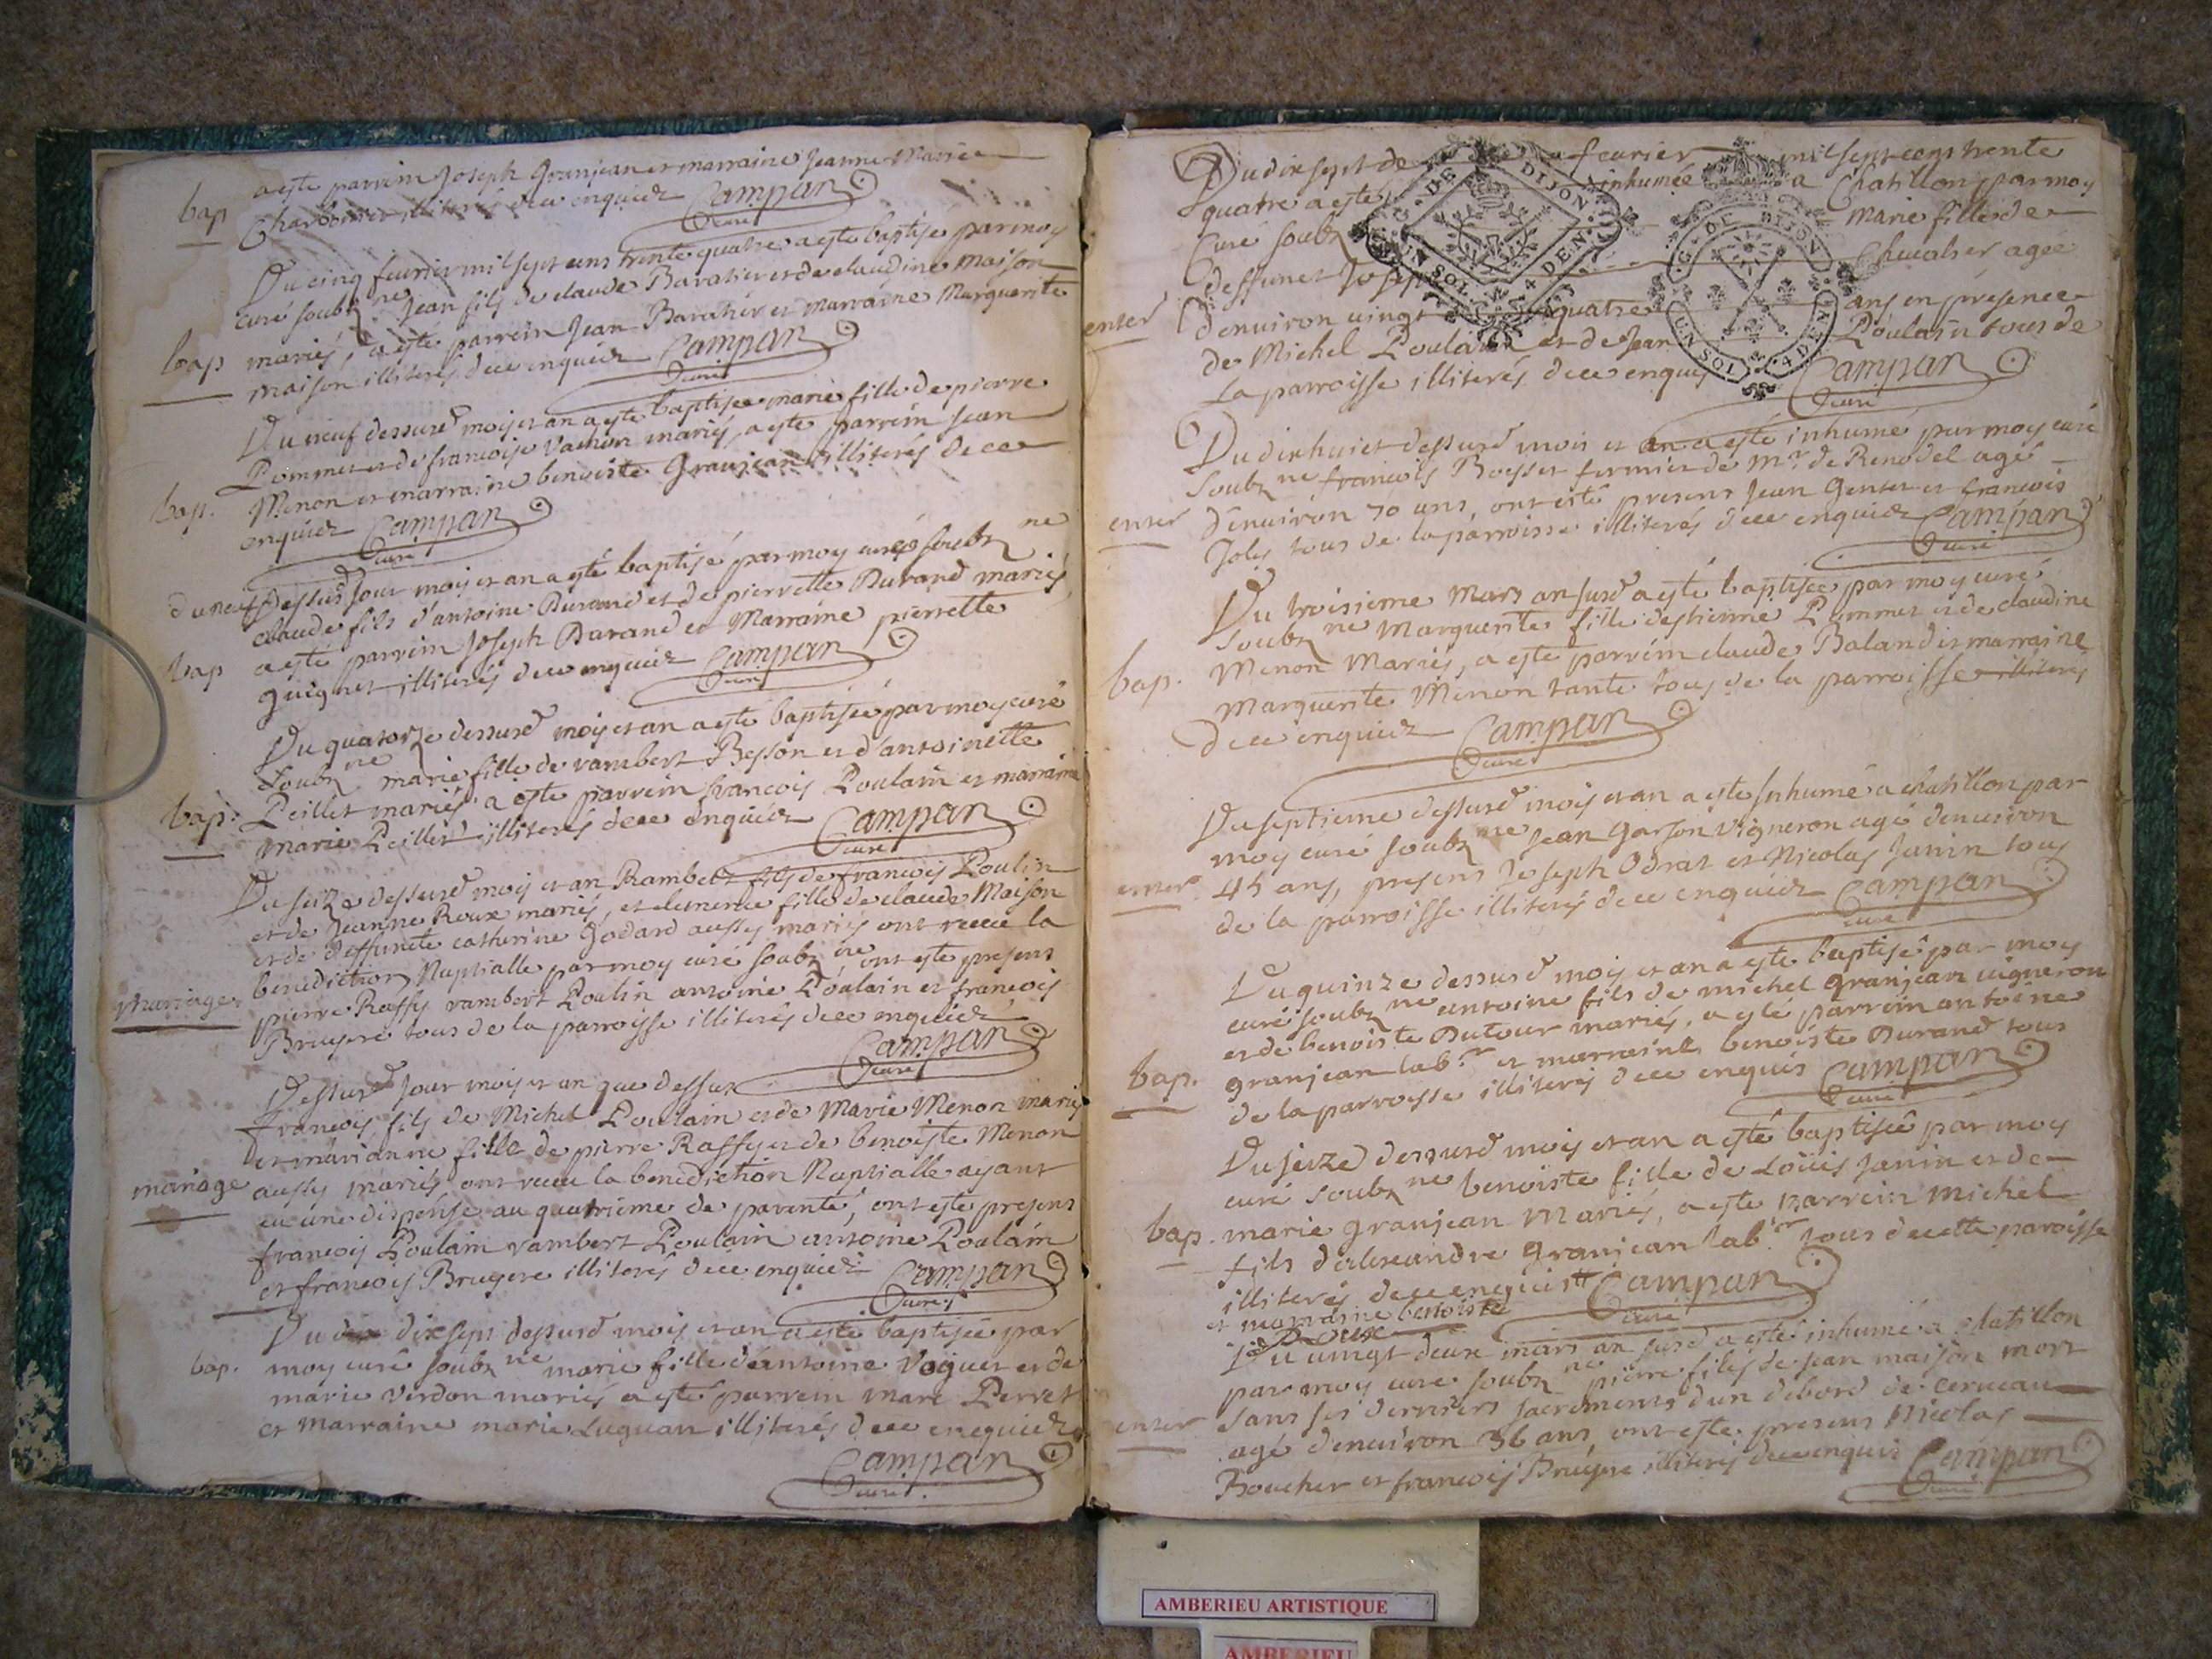 a esté parrein Joseph Granjean et marraine Jeanne Marie
bap
Charbonnier illiterés de ce enquiez Campan
curé
Du cinq fevrier mil sept cens trente quatre a esté baptisé par moy
curé soubz ne Jean fils de claude Baratier et de claudine maison
bap mariés, a esté parrein Jean Baratier et marraine Marguerite
maison illiterés de ce enquiez Campan
curé
Du neuf dessusd mois et an a esté baptisée marie fille de pierre
Pommet et de francoise vamon mariés, a esté parrein Jean
bap. Menon et marraine benoiste Granjean illiterés de ce
enquiez Campan
curé
du neuf dessusd jour mois et an a esté baptisé par moy curé soubz ne
claude fils d'antoine Durand et de pierrette Durand mariés
bap a esté parrein Joseph Durand et Marraine pierrette
guignet illiterés de ce enquiez Campan
curé
Du quatorze dessusd mois et an a esté baptisée par moy curé
soubz ne marie fille de rambert Besson et d'antoinette
bap: Peillet mariés a esté parrein francois Poulain et marraine
marie Peillet illiterés de ce enquiez Campan
curé
Du seize dessusd mois et an Rambert fils de francois Poulin
et de Jeanne Roux mariés, et clemence fille de claude Maison
et de deffuncte catherine Godard aussy mariés ont receu la
mariage benediction Nuptialle par moy curé soubz ne ont esté presens
pierre Raffy rambert Poulin antoine Poulain et francois
Bruyere tous de la parroisse illiterés de ce enquiez
Campan
curé
Dessusd jour mois et an que dessus
francois fils de Michel Poulain et de Marie Menon mariés
et marianne fille de pierre Raffy et de benoiste Menon
mariage aussy mariés ont receu la benediction Nuptialle ayant
eu une dispense au quatrieme de parenté, ont esté presens
francois Poulain rambert Poulain antoine Poulain
et francois Bruyere illiterés de ce enquiez Campan
curé
Du dixsept dessusd mois et an a esté baptisée par
bap. moy curé soubz ne marie fille d'antoine Voguet et de
marie verdon mariés a esté parrein marc Perret
et Marraine marie Luguan illiterés de ce enquiez
Campan
curé
Du dix sept de fevrier mil sept cens trente
quatre a esté inhumée a Chatillon par moy
Curé soubz Marie fille de
deffunct Joseph Chevalier agée
enter d'environ vingt quatre ans en présence
de Michel Poulain et de Jean Poulain tous de
La parroisse illiterés de ce enquis Campan
curé
G. DE DIJON
UN SOL 4 DEN.
G. DE DIJON
UN SOL 4 DEN
Du dixhuict dessusd mois et an a esté inhumé par moy curé
soubz ne francois Boysset fermier de Mr. de Renodel agé
enter d'environ 70 ans, ont esté presens Jean Genset et francois
Joly tous de la parroisse illiterés de ce enquiez Campan
curé
Du troisieme Mars an susd a esté baptisée par moy curé
soubz ne Marguerite fille d'estienne Pommet et de claudine
bap. Menon Mariés, a esté parrein claude Baland et marraine
Marguerite Menon tante tous de la parroisse illiterés
de ce enquiez Campan
curé
Du septieme dessusd mois et an a esté Inhumé a chatillon par
moy curé soubz ne Jean Garson vigneron agé d'environ
enter 45 ans, presens Joseph Odrat et Nicolas Janin tous
de la parroisse illiterés de ce enquiez Campan
curé
Du quinze dessusd mois et an a esté baptisé par moy
curé soubz ne antoine fils de michel Granjean vigneron
et de benoiste Dutour mariés, a esté parrein antoine
bap. granjean labr. et marraine benoiste Durand tous
de la parroisse illiterés de ce enquis Campan
curé
Du seize dessusd mois et an a esté baptisée par moy
curé soubz ne benoiste fille de Loüis Janin et de
bap. marie granjean Mariés, a esté parrein michel
fils d'alexandre Granjean labr. tous de cette paroisse
illiterés de ce enquis Campan
et marraine benoiste
curé
Du vingt deux mars an susd a esté inhumé a chatillon
par moy curé soubz ne pierre fils de Jean maison mort
enter sans ses derniers sacrements d'un debord de cerveau
agé d'environ 36 ans, ont esté presens Nicolas
Boucher et francois Bruyere illiterés de ce enquis Campan
curé
AMBERIEU ARTISTIQUE
AMBERIEU